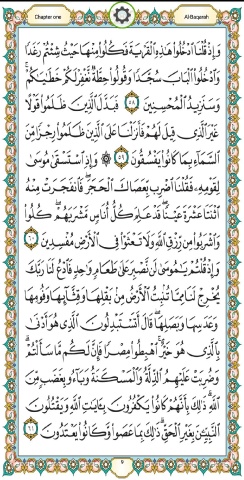 Chapter one
Al-Baqarah
وَإِذْ قُلْنَا ادْخُلُوا هَٰذِهِ الْقَرْيَةَ فَكُلُوا مِنْهَا حَيْثُ شِئْتُمْ رَغَدًا
وَادْخُلُوا الْبَابَ سُجَّدًا وَقُولُوا حِطَّةٌ نَّغْفِرْ لَكُمْ خَطَايَاكُمْ ۚ
وَسَنَزِيدُ الْمُحْسِنِينَ ٥٨ فَبَدَّلَ الَّذِينَ ظَلَمُوا قَوْلًا
غَيْرَ الَّذِي قِيلَ لَهُمْ فَأَنزَلْنَا عَلَى الَّذِينَ ظَلَمُوا رِجْزًا مِّنَ
السَّمَاءِ بِمَا كَانُوا يَفْسُقُونَ ٥٩ ۞ وَإِذِ اسْتَسْقَىٰ مُوسَىٰ
لِقَوْمِهِ فَقُلْنَا اضْرِب بِّعَصَاكَ الْحَجَرَ ۖ فَانفَجَرَتْ مِنْهُ
اثْنَتَا عَشْرَةَ عَيْنًا ۖ قَدْ عَلِمَ كُلُّ أُنَاسٍ مَّشْرَبَهُمْ ۖ كُلُوا
وَاشْرَبُوا مِن رِّزْقِ اللَّهِ وَلَا تَعْثَوْا فِي الْأَرْضِ مُفْسِدِينَ ٦٠
وَإِذْ قُلْتُمْ يَا مُوسَىٰ لَن نَّصْبِرَ عَلَىٰ طَعَامٍ وَاحِدٍ فَادْعُ لَنَا رَبَّكَ
يُخْرِجْ لَنَا مِمَّا تُنبِتُ الْأَرْضُ مِن بَقْلِهَا وَقِثَّائِهَا وَفُومِهَا
وَعَدَسِهَا وَبَصَلِهَا ۖ قَالَ أَتَسْتَبْدِلُونَ الَّذِي هُوَ أَدْنَىٰ
بِالَّذِي هُوَ خَيْرٌ ۚ اهْبِطُوا مِصْرًا فَإِنَّ لَكُم مَّا سَأَلْتُمْ ۗ
وَضُرِبَتْ عَلَيْهِمُ الذِّلَّةُ وَالْمَسْكَنَةُ وَبَاءُوا بِغَضَبٍ مِّنَ
اللَّهِ ۗ ذَٰلِكَ بِأَنَّهُمْ كَانُوا يَكْفُرُونَ بِآيَاتِ اللَّهِ وَيَقْتُلُونَ
النَّبِيِّينَ بِغَيْرِ الْحَقِّ ۗ ذَٰلِكَ بِمَا عَصَوا وَّكَانُوا يَعْتَدُونَ ٦١
٩